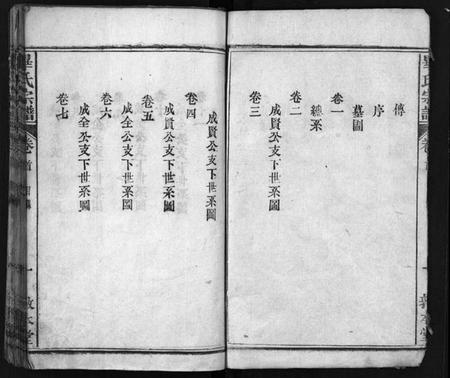 傳
序
卷一
墓圖
總系
卷二
成賢公支下世系圖
卷三
成賢公支下世系圖
卷四
成賢公支下世系圖
卷五
成全公支下世系圖
卷六
成全公支下世系圖
卷七
畢氏宗譜
卷首
一
敦本堂